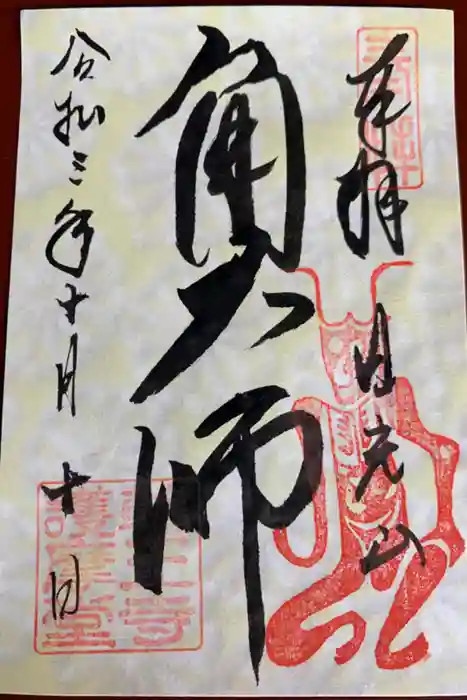 奉拝
日光山
角大師
令和三年十月十日